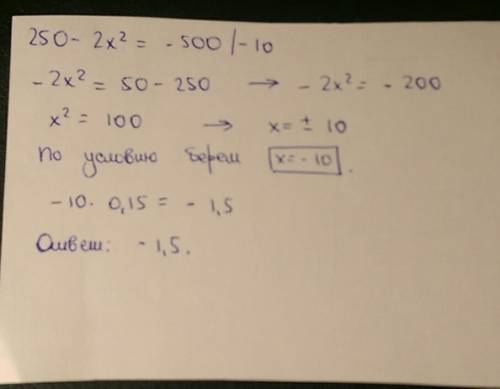 250 - 2x² = - 500 / - 10
- 2x² = 50 - 250 → - 2x² = - 200
x² = 100 → x = ± 10
По условию берем x = - 10 .
- 10 · 0,15 = - 1,5
Ответ: - 1,5.